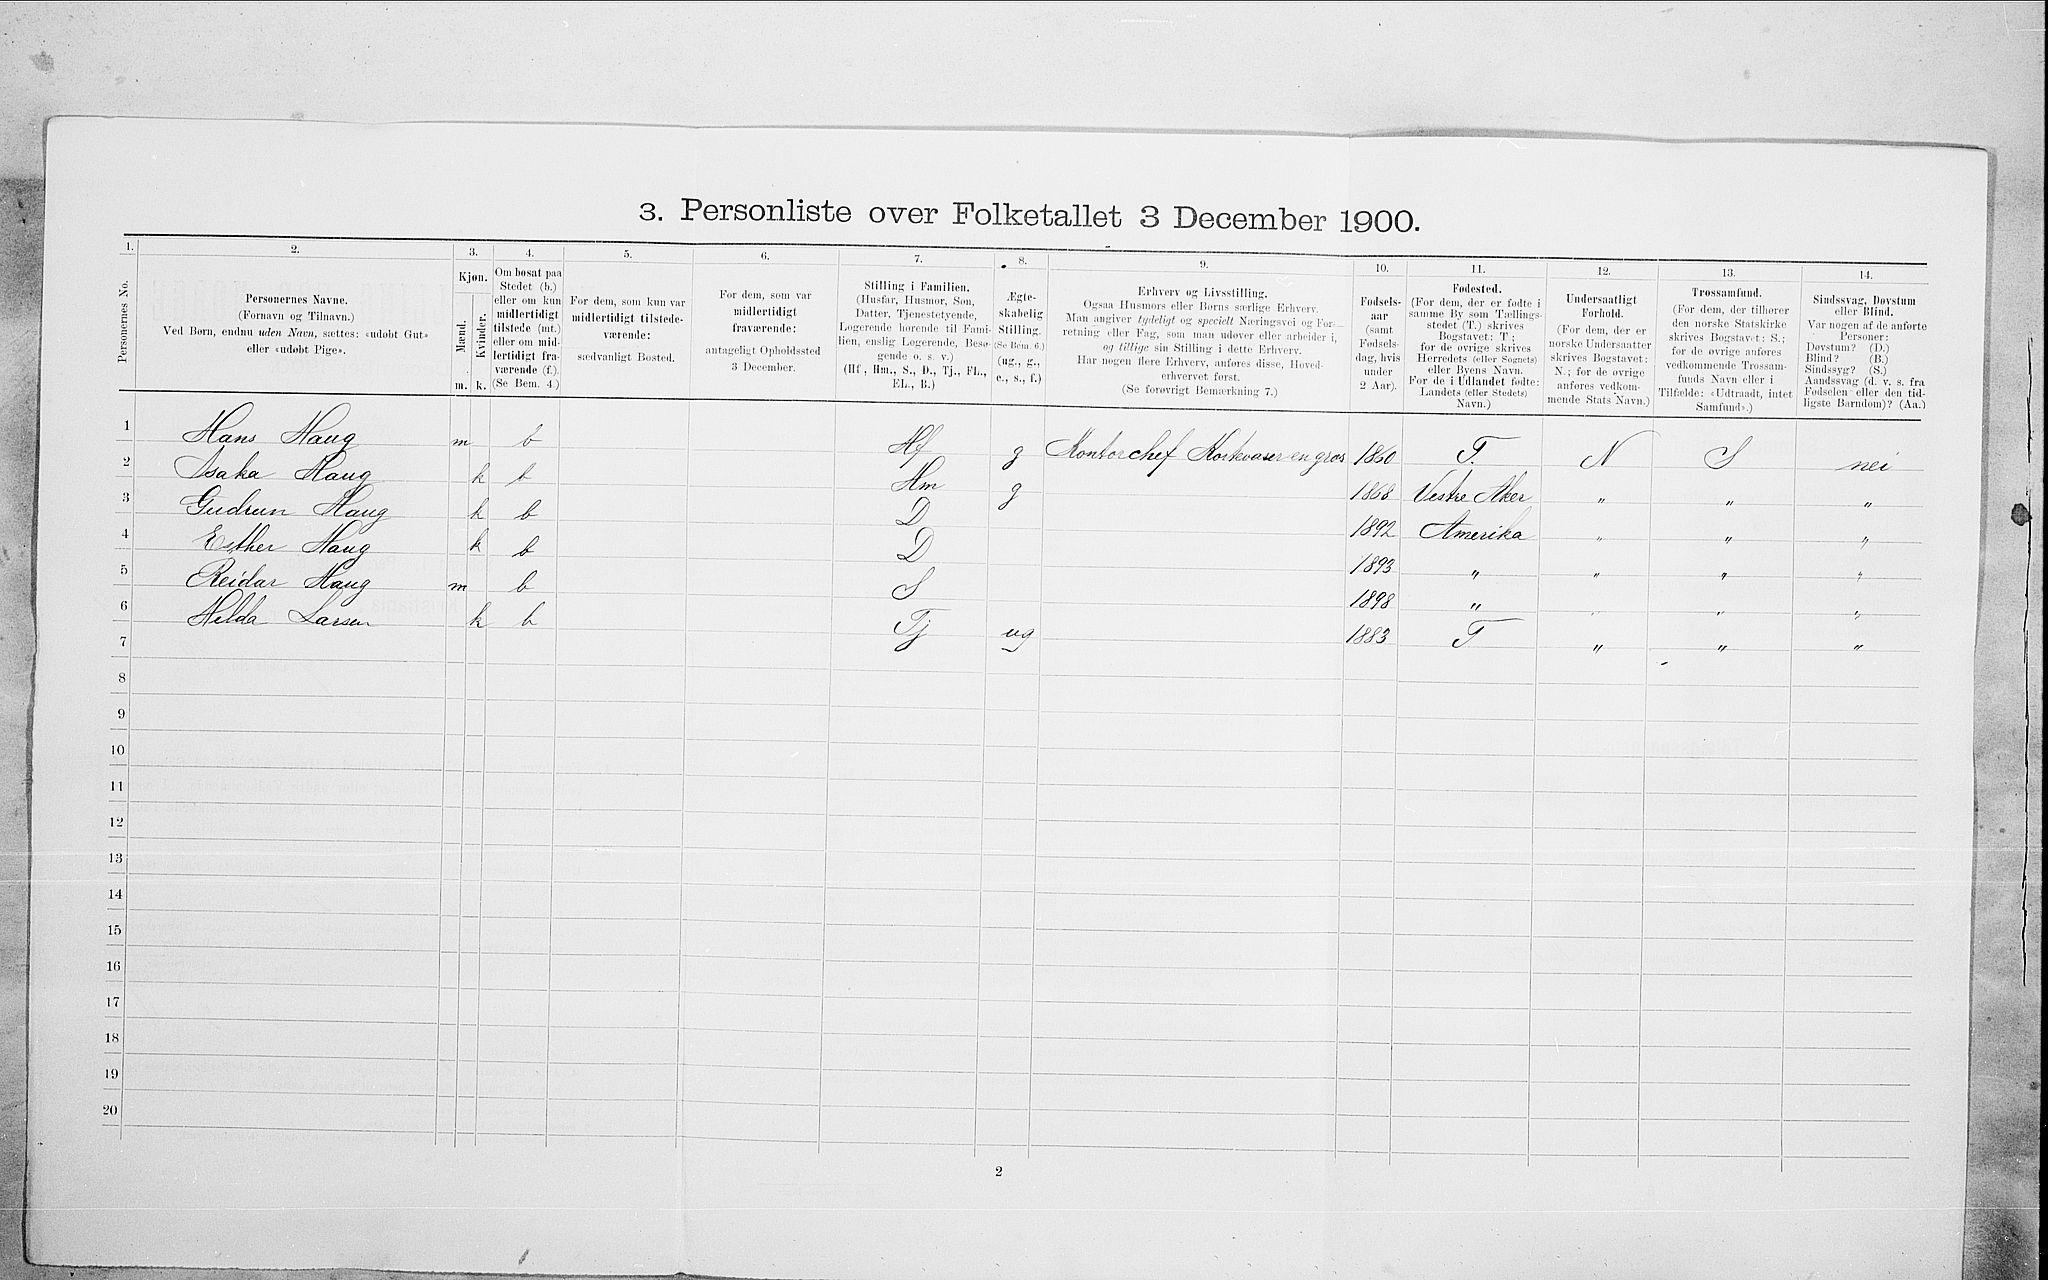 3. Personliste over Folketallet 3 December 1900.
1. 2. 3. 4. 5. 6. 7. 8. 9. 10. 11. 12. 13. 14.
Personernes No.
Personernes Navne.
(Fornavn og Tilnavn.)
Ved Børn, endnu uden Navn, sættes: «udøbt Gut»
eller «udøbt Pige».
Kjøn.
Mænd.
Kvinder.
m. k.
Om bosat paa
Stedet (b.)
eller om kun
midlertidigt
tilstede (mt.)
eller om mid-
lertidigt fra-
værende (f.)
(Se Bem. 4.)
For dem, som kun var
midlertidigt tilstede-
værende:
sædvanligt Bosted.
For dem, som var
midlertidigt
fraværende:
antageligt Opholdssted
3 December.
Stilling i Familien.
(Husfar, Husmor, Søn,
Datter, Tjenestetyende,
Logerende hørende til Fami-
lien, enslig Logerende, Besø-
gende o. s. v.)
(Hf., Hm., S., D., Tj., FL.,
EL., B.)
Ægte-
skabelig
Stilling.
(Se Bem. 6.)
(ug., g.,
e., s., f.)
Erhverv og Livsstilling.
Ogsaa Husmors eller Børns særlige Erhverv.
Man angiver tydeligt og specielt Næringsvei og For-
retning eller Fag, som man udøver eller arbeider i,
og tillige sin Stilling i dette Erhverv.
Har nogen flere Erhverv, anføres disse, Hoved-
erhvervet først.
(Se forøvrigt Bemærkning 7.)
Fødsels-
aar
(samt
Fødsels-
dag, hvis
under
2 Aar).
Fødested.
(For dem, der er fødte i
samme By som Tællings-
stedet (T.) skrives
Bogstavet: T;
for de øvrige skrives
Herredets (eller Sognets)
eller Byens Navn.
For de i Udlandet fødte:
Landets (eller Stedets)
Navn.)
Undersaatligt
Forhold.
(For dem, der er
norske Undersaatter
skrives Bogstavet:
N.; for de øvrige
anføres vedkom-
mende Stats Navn.)
Trossamfund.
(For dem, der tilhører
den norske Statskirke
skrives Bogstavet: S.;
for de øvrige anføres
vedkommende Trossam-
funds Navn eller i
Tilfælde: «Udtraadt, intet
Samfund».)
Sindssvag, Døvstum
eller Blind.
Var nogen af de anførte
Personer:
Døvstum? (D.)
Blind? (B.)
Sindssyg? (S.)
Aandssvag (d. v. s. fra
Fødselen eller den tid-
ligste Barndom)? (Aa.)
1 Hans Haug m b Hf g Kontorchef Kortevarer en gros 1860 T. N S nei
2 Asaka Haug k b Hm g 1868 Vestre Aker " " "
3 Gudrun Haug k b D 1892 Amerika " " "
4 Esther Haug k b D 1893 " " " "
5 Reidar Haug m b S 1898 " " " "
6 Hilda Larsen k b Tj ug 1883 T " " "
7
8
9
10
11
12
13
14
15
16
17
18
19
20
2